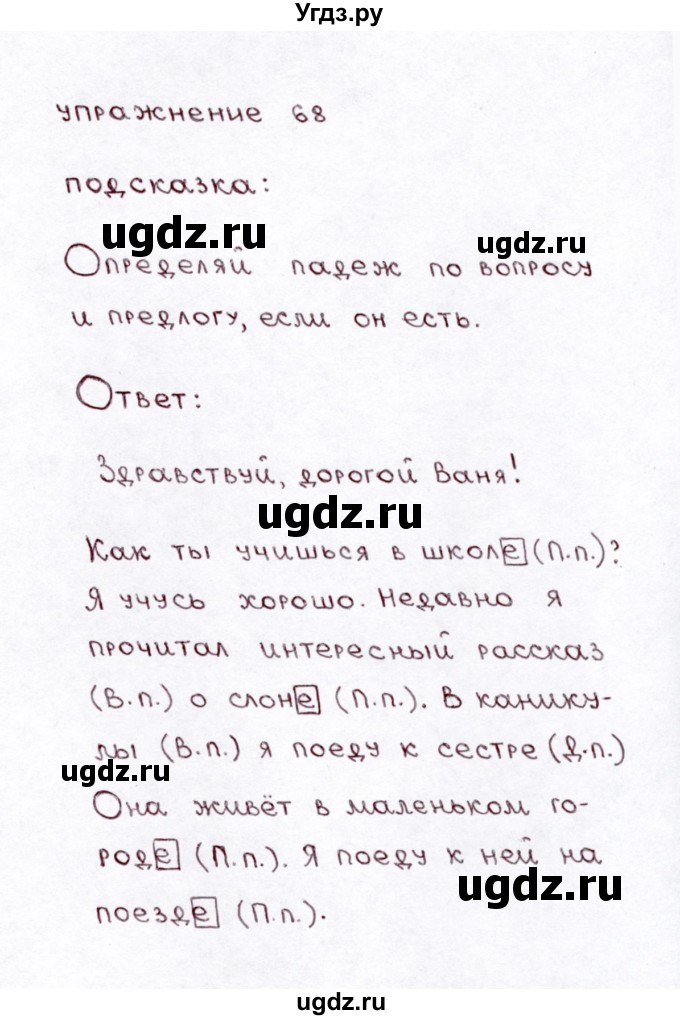 Угдз.ру
упражнение 68
подсказка:
ugdz.ru
ugdz.ru
Определяй падеж по вопросу
и предлогу, если он есть.
Ответ:
Здравствуй, дорогой Ваня!
ugdz.ru
Как ты учишься в школе (П.п.)?
Я учусь хорошо. Недавно я
прочитал интересный рассказ
(В.п.) о слоне (П.п.). В канику-
лы (В.п.) я поеду к сестре (Д.п.)
ugdz.ru
Она живёт в маленьком го-
роде (П.п.). Я поеду к ней на
ugdz.ru
поезде (П.п.).
ugdz.ru